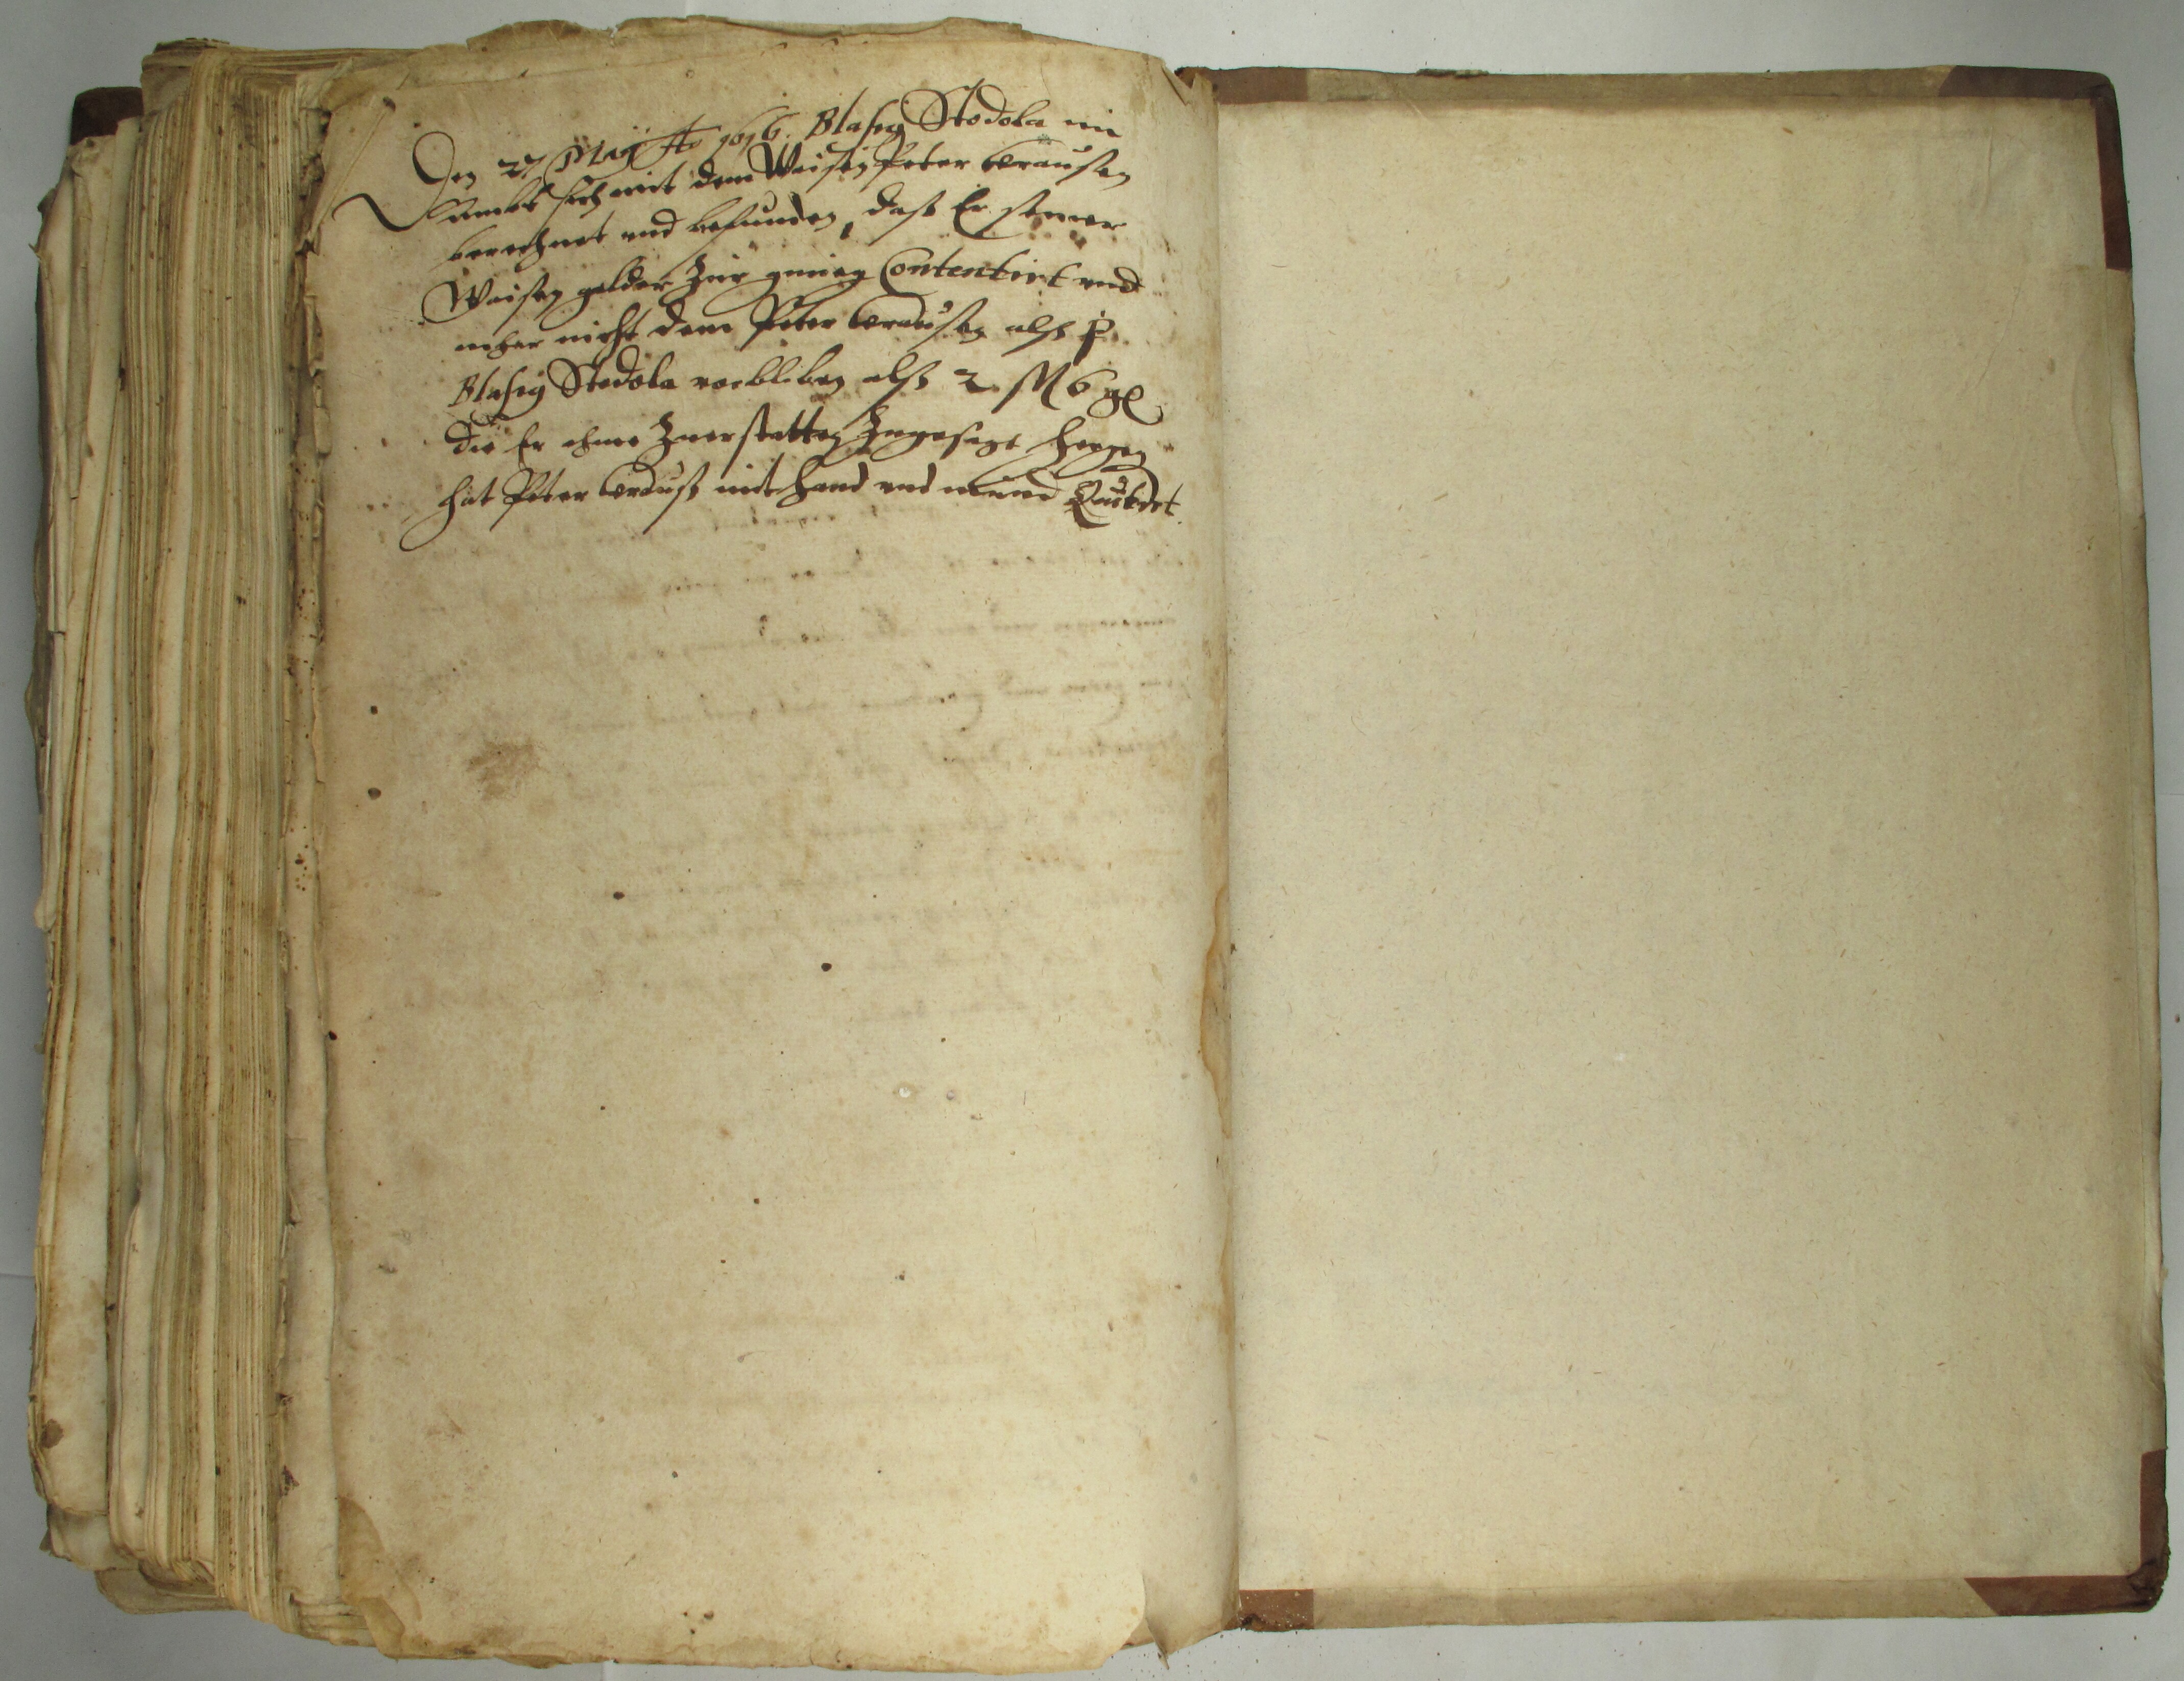 Den 27 Maÿ Ao 1616. Blasig Stodola im
Ambt sich mit dem Waisen Peter Krausen
berechnet und befunden, daß Er seiner
Waisen gelder zur gnüeg Contentirt und
mher nicht dem Peter Krausen alß
Blasig Stodola verbliben alß 2 M 6 gl
die Er ihme Zuerstatten Zugesagt
hat Peter Krauß mit hand und mund Quitirt.